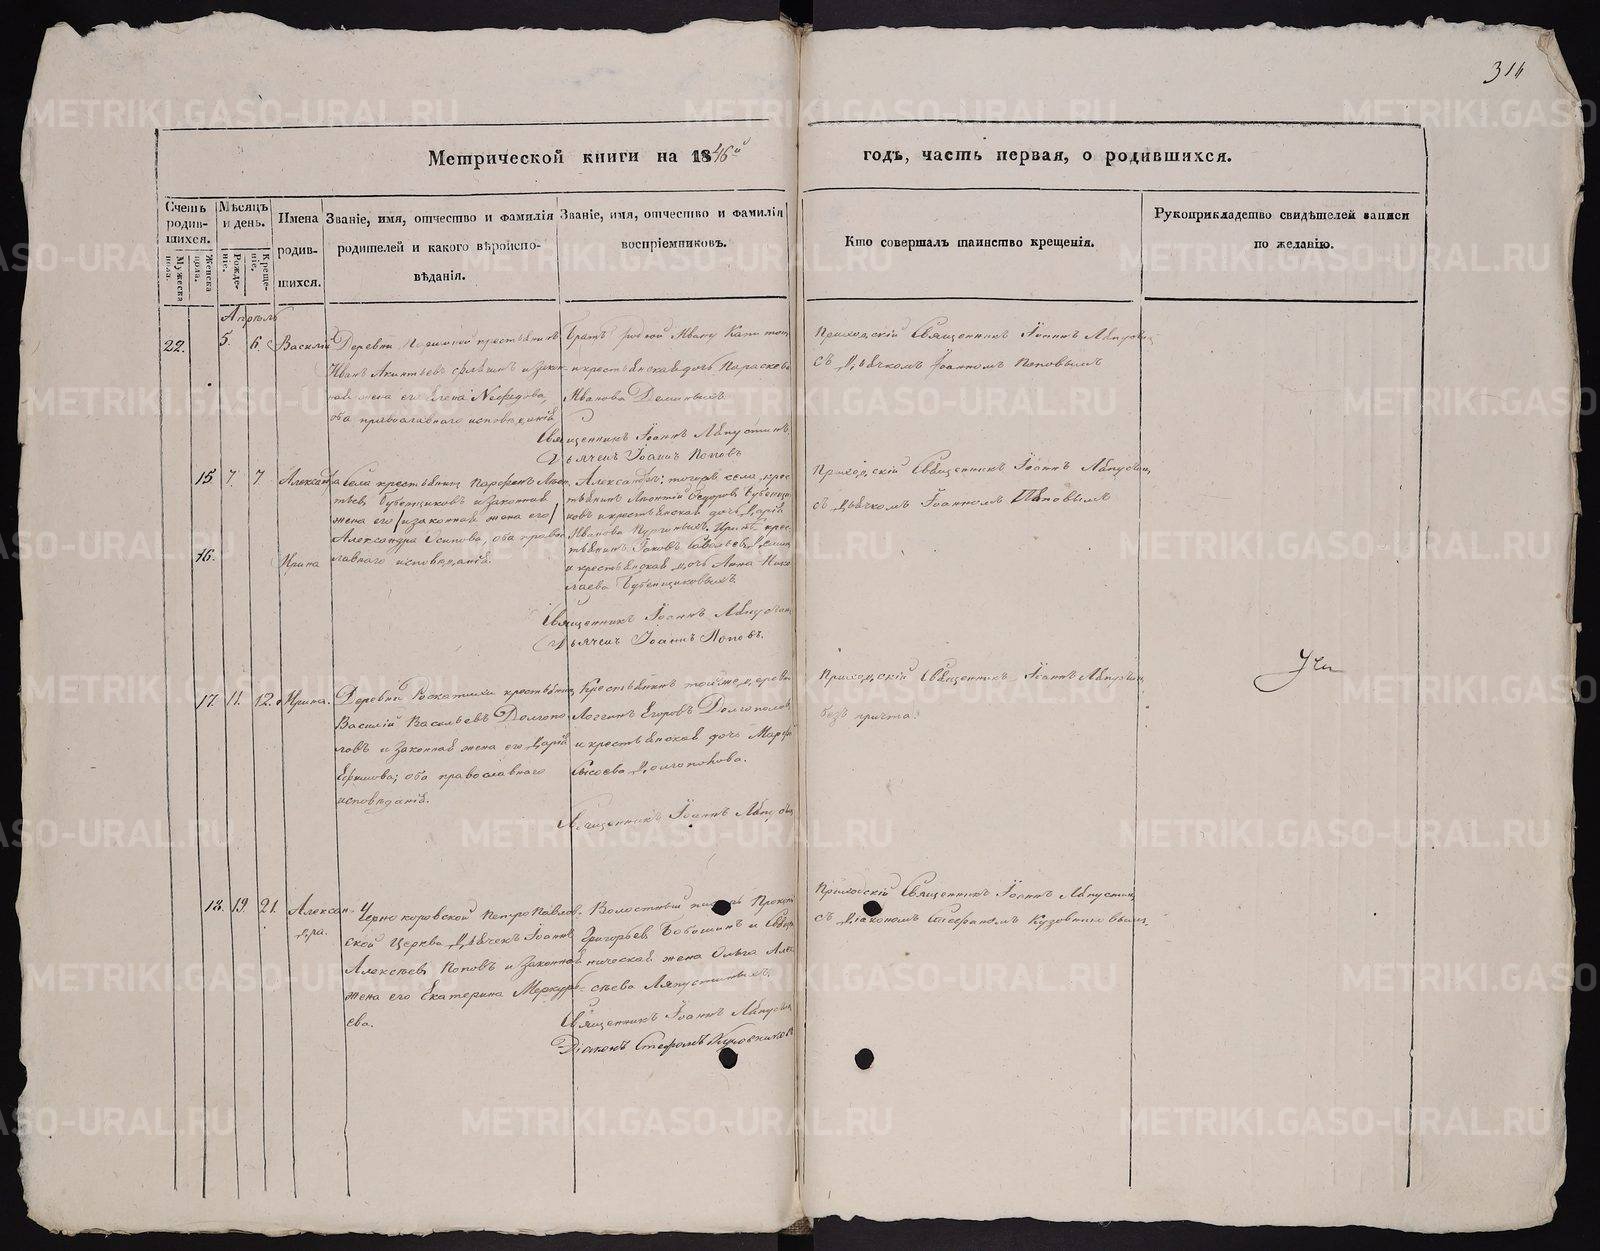 314
Метрической книги на 1846й годъ, часть первая, о родившихся.
Счетъ родив-шихся.
Мужеска пола.
Женска пола.
Мѣсяцъ и день.
Рожде-ніе.
Креще-ніе.
Имена родив-шихся.
Званіе, имя, отчество и фамилія родителей и какого вѣроиспо-вѣданія.
Званіе, имя, отчество и фамилія воспріемниковъ.
Кто совершалъ таинство крещенія.
Рукоприкладство свидѣтелей записи по желанію.
Апрѣль
22. 5. 6. Василій
Деревни крестьянинъ
Иванъ Акинтьевъ и закон-
ная жена его Елена Нефедова,
оба православнаго исповѣданія
Братъ родной Иванъ
и крестьянская дочь Параскева
Иванова
Священникъ Іоаннъ Ляпустинъ
Дьячекъ Іоаннъ Поповъ
Приходскій Священникъ Іоаннъ Ляпустинъ
съ Дьячкомъ Іоанномъ Поповымъ
15 7. 7 Александра
Села крестьянинъ Парфенъ Леон-
тьевъ Бубенщиковъ и законная
жена его /и законная жена его/
Александра Осипова, оба право-
славнаго исповѣданія.
16. Ирина
Александрѣ: тогоже села крес-
тьянинъ Леонтій Федоровъ Бубенщи-
ковъ и крестьянская дочь Дарія
Иванова Иринѣ крес-
тьянинъ Іаковъ
и крестьянская дочь Анна Нико-
лаева Бубенщиковыхъ
Священникъ Іоаннъ Ляпустинъ
Дьячекъ Іоаннъ Поповъ.
Приходскій Священникъ Іоаннъ Ляпустинъ
съ Дьячкомъ Іоанномъ Поповымъ
17. 11. 12. Ирина.
Деревни Роскатихи крестьянинъ
Василій Васильевъ Долгопо-
ловъ и законная жена его Дарія
Ефимова; оба православнаго
исповѣданія.
Крестьянинъ тойже деревни
Логгинъ Егоровъ Долгополовъ
и крестьянская дочь Марфа
Сысоева Долгополова.
Священникъ Іоаннъ Ляпустинъ
Приходскій Священникъ Іоаннъ Ляпустинъ
безъ причта.
18. 19. 21. Алексан-
дра.
Чернокоровской Петро Павлов-
ской Церкви Дьячекъ Іоаннъ
Алексѣевъ Поповъ и законная
жена его Екатерина Меркурь-
ева.
Волостный писарь
Григорьевъ Бабошинъ и Свяще-
нническая жена Ольга Алек-
сѣева Ляпустиныхъ
Священникъ Іоаннъ Ляпустинъ
Діаконъ Стефанъ Кузовниковъ
Приходскій Священникъ Іоаннъ Ляпустинъ
съ Діакономъ Стефаномъ Кузовниковымъ
METRIKI.GASO-URAL.RU